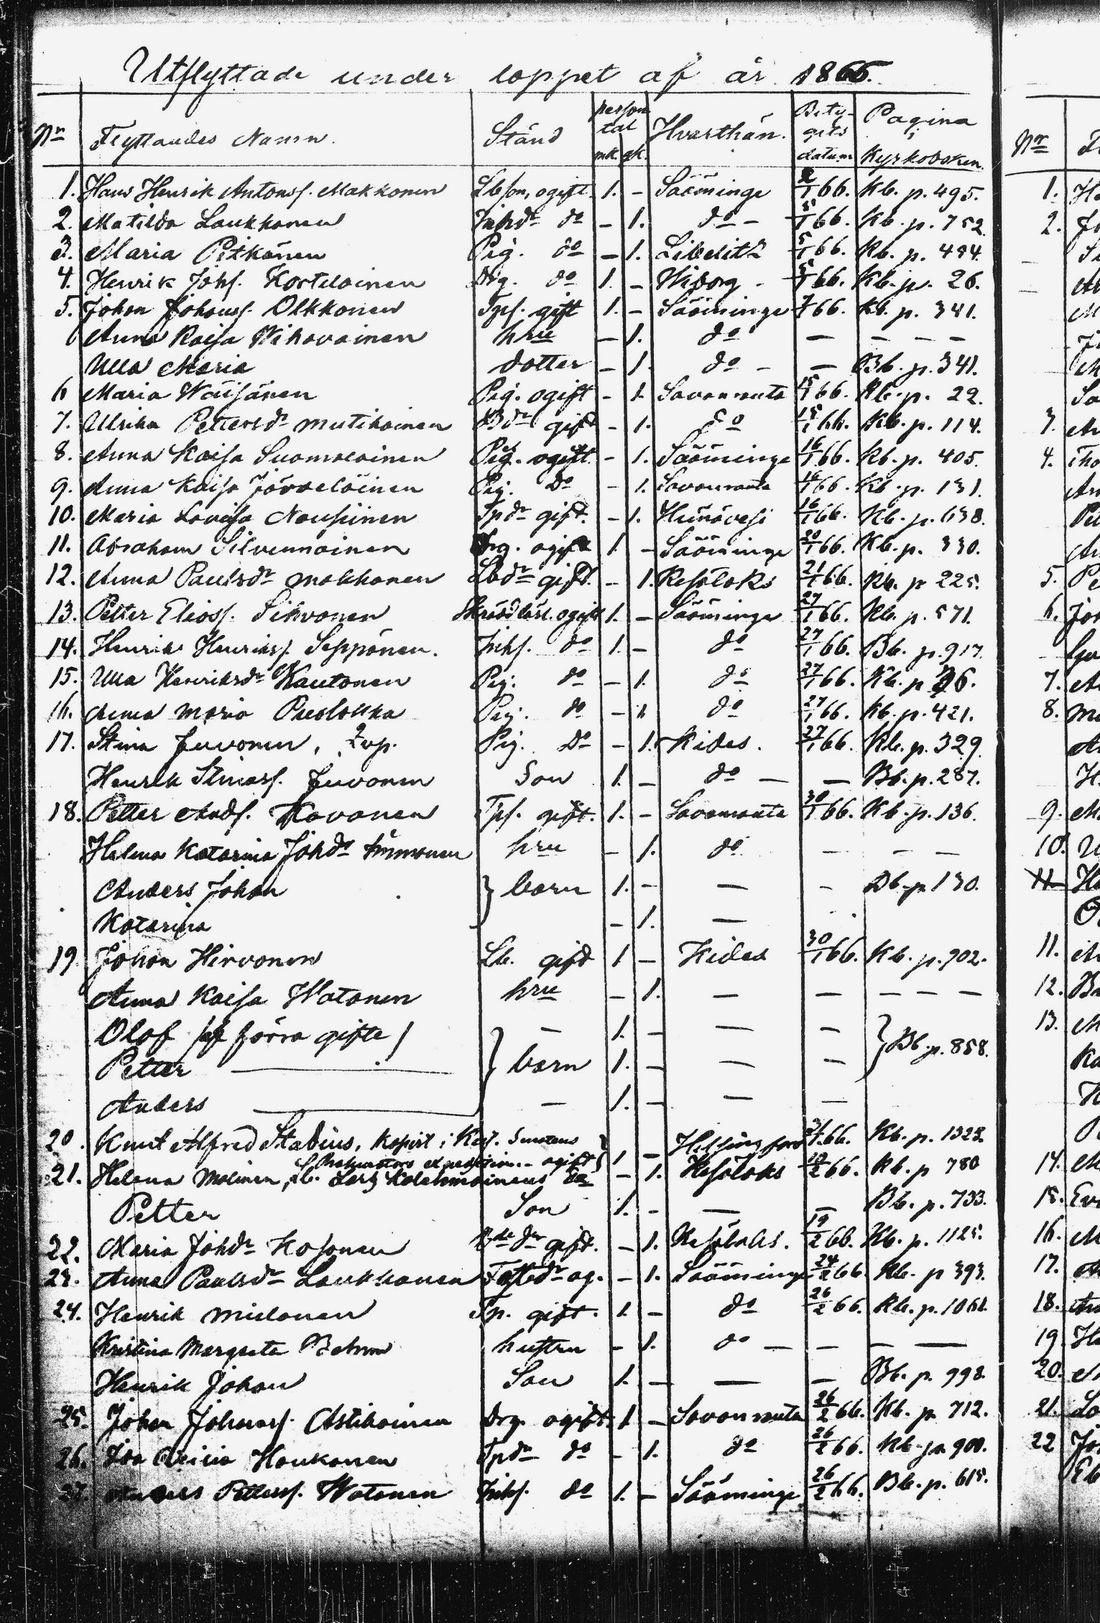 Utflyttade under loppet af år 1866.
Nr Flyttandes Namn. Stånd Person tal mk. qk. Hvarthän. Bety- gets datum Pagina i Kyrkoboken. Nr
1. Hans Henrik Antonsf. Makkonen Lbson, ogift. 1. – Sääminge 2/1 66. Kb. p. 495. 1.
2. Matilda Laukkanen Inhdr do – 1. do – 5/1 66. Kb. p. 752. 2.
3. Maria Pitkänen Pig. do – 1. Libelits 5/1 66. Kb. p. 484.
4. Henrik Johsf. Kortelainen Drg. do 1. – Wiborg – 5/1 66. Kb. p. 26.
5. Johan Johansf. Olkkonen Tpsf. gift 1. – Sääminge 7/1 66. Kb. p. 341.
Anna Kaisa Wihavainen hru – 1. do – – – –
Ulla Maria dotter – 1. do – – Bb. p. 341.
6 Maria Wäisänen Pig. ogift – 1. Savonranta 15/1 66. Kb. p. 22.
7. Ulrika Pettersdr Mutikainen Bdr gift – 1. do 15/1 66. Kb. p. 114. 3.
8. Anna Kaisa Suomalainen Pig. ogift. – 1. Sääminge 16/1 66. Kb. p. 405. 4.
9. Anna Kaisa Jäväläinen Pig. do – 1. Savonranta 16/1 66. Kb. p. 131.
10. Maria Lovisa Nousiinen Tpdr gift. – 1. Heinävesi 16/1 66. Kb. p. 638.
11. Abraham Silvennoinen Drg. ogift 1. – Sääminge 20/1 66. Kb. p. 330.
12. Anna Paulsdr Makkonen Lbdr gift. – 1. Kesäloks 21/1 66. Kb. p 225. 5.
13. Petter Eliasf. Sihvonen Skrädlärl. ogift 1. – Sääminge 27/1 66. Kb. p. 571. 6.
14. Henrik Henriksf. Seppänen. Inhsf. do 1. – do 27/1 66. Bb. p. 917.
15. Ulla Henriksdr Kautonen Pig. do – 1. do 27/1 66. Kb. p 26. 7.
16. Anna Maria Puolakka Pig. do – 1. do 27/1 66. Kb. p. 421. 8.
17. Stina Juvonen, Pig. do – 1. Kides. 27/1 66. Kb. p. 329.
Henrik Stinasf. Juvonen Son 1. – do – – Bb. p. 287.
18. Petter Andsf. Kovanen Tpsf. gift. 1. – Savonranta 30/1 66. Kb. p. 136. 9.
Helena Katarina Johdr Immonen hru – 1. do – – – 10.
Anders Johan } barn 1. – – – Bb. p 130. 11.
Katarina – 1. –
19. Johan Hirvonen Lb. gift 1 – Kides 30/1 66. Kb. p. 902. 11.
Anna Kaisa Watanen hru – 1. – – – – – 12.
Olof /af förra gifte/ – 1. – – – } 13.
Petter — } barn 1. – – – Bb. p. 858.
Anders — – 1. – – –
20. Knut Alfred Stabius, kopist i Kejs. Senatens Helsingfors 66. Kb. p. 1323.
expedition ogift } 1 –
21. Helena Malinen, Lb. Lars Kolehmainens – 1. Kesäloks 66. Kb. p 780 14.
Petter Son 1. – – – Bb. p. 733. 15.
22. Maria Johdr Kosonen dr gift. – 1. Kesäloks. 19/2 66. Kb. p. 1125. 16.
23. Anna Paulsdr Laukkanen og. – 1. Sääminge 24/2 66. Kb. p 393. 17.
24. Henrik Mielonen Tp. gift. 1 – do 26/2 66. Kb. p. 1061. 18.
Kristina Margreta Behm hustru – 1. do – – – – 19.
Henrik Johan Son 1. – – – Bb. p. 998. 20.
25. Johan Johansf. Astikainen Drg. ogift. 1 – Savonranta 26/2 66. Kb. p 712. 21.
26. Ida Haukanen Tpdr do – 1. do 26/2 66. Kb. p. 900. 22
27. Anders Pettersf. Watanen Inhsf. do 1. – Sääminge 26/2 66. Bb. p. 615.